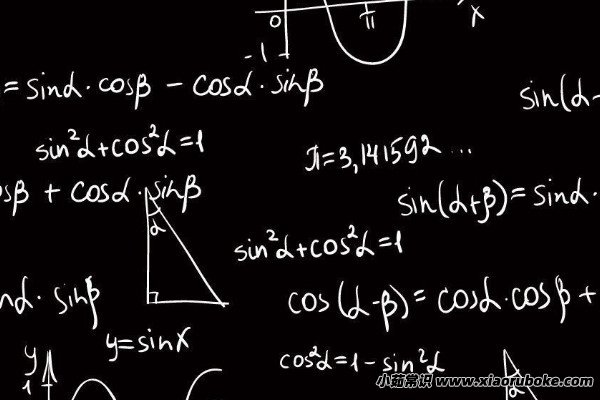 0 π x
-1
= sinα·cosβ − cosα·sinβ
sin(α-
sin²α+cos²α=1
π=3,141592...
sβ + cosα·sinβ
α
sin(α+β)=sinα·
sin²α+cos²α=1
nα·sinβ
cos(α-β)=cosα·cosβ+
y=sinx
y
1
cos²α=1-sin²α
α
小茹常识 www.xiaoruboke.com